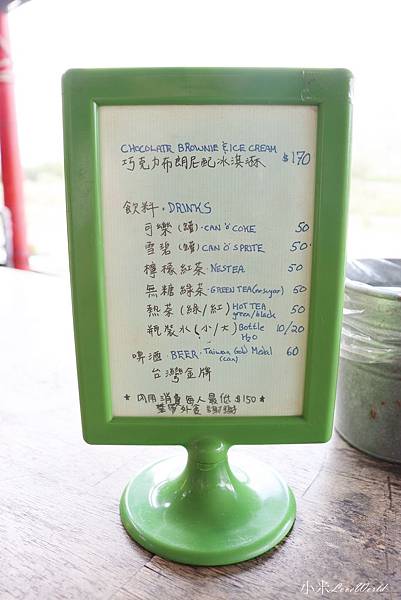 CHOCOLATE BROWNIE & ICE CREAM
巧克力布朗尼配冰淇淋 $170
飲料・DRINKS
可樂(罐)・CAN o' COKE 50
雪碧(罐)CAN o' SPRITE 50
檸檬紅茶・NESTEA 50
無糖綠茶・GREEN TEA (no sugar) 50
熱茶(綠/紅)HOT TEA green/black 50
瓶裝水(小/大)Bottle H2O 10/20
啤酒・BEER・Taiwan Gold Medal (can) 60
台灣金牌
★內用消費每人最低$150★
禁帶外食 謝謝
小米LoveWorld